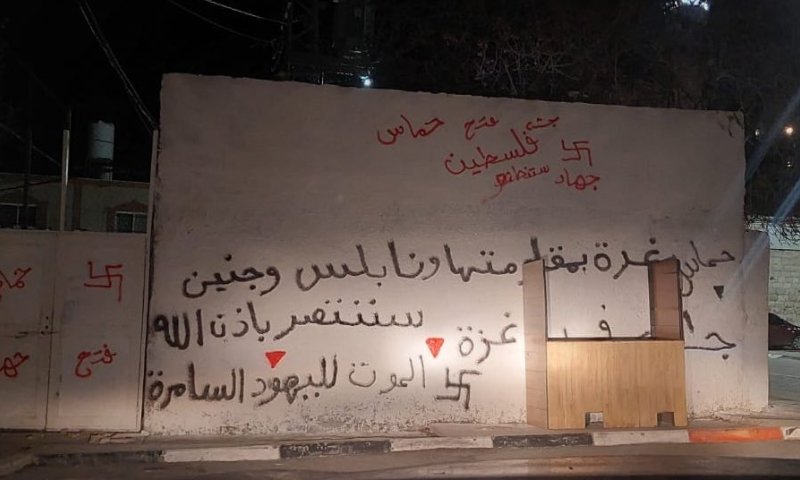 جند فتح حماس
فلسطين
جهاد
حماس غزة بمقاومتها ونابلس وجنين
غزة سننتصر باذن الله
الموت لليهود السامرة
حما
فتح
جها